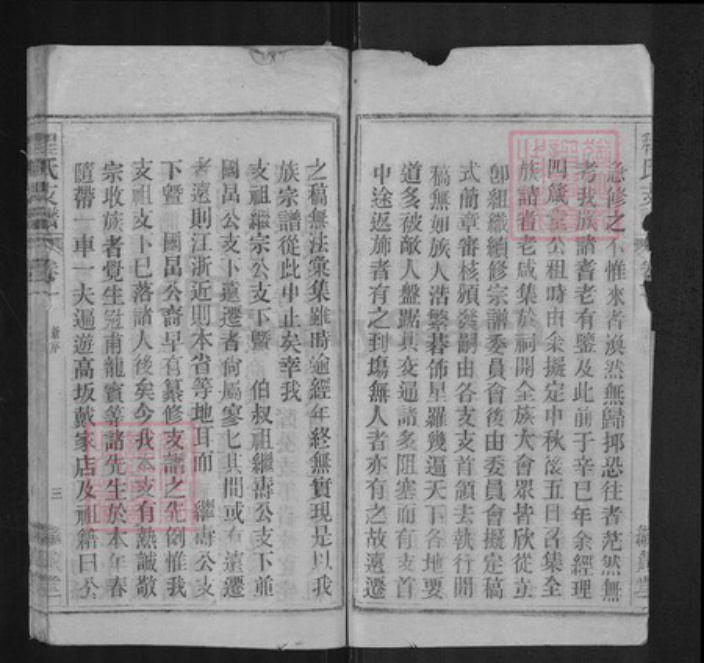 急修之不惟來者渙然無歸抑恐往者茫然無
考我族諸耆老有鑒及此前于辛巳年余經理
四箴堂公租時由余擬定中秋後五日召集全
族諸耆老咸集於祠開全族大會眾皆欣從立
卽組織續修宗譜委員會後由委員會擬定稿
式簡章審核頒發嗣由各支支首領去執行開
稿無如族人浩繁碁佈星羅幾遍天下各地要
道多被敵人盤踞其交通諸多阻塞而有支首
中途返旆者有之到塲無人者亦有之故遠遷
之稿無法彙集雖時逾經年終無實現是以我
族宗譜從此中止矣幸我
支祖繼宗公支下暨 伯叔祖繼壽公支下並
國昌公支下遠遷者尙屬寥七其間或有遠遷
者遠則江浙近則本省等地耳而 繼壽公支
下暨 國昌公裔早有纂修支譜之先例惟我
支祖支下已落諸人後矣今我本支有熱誠敬
宗收族者覺生冠甫龍賓等諸先生於本年春
隨帶一車一夫遍遊高坂戴家店及祖籍曰公
程氏支譜 卷一
三